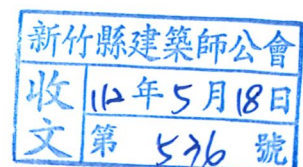 新竹縣建築師公會
收文
112年5月18日
第 536 號